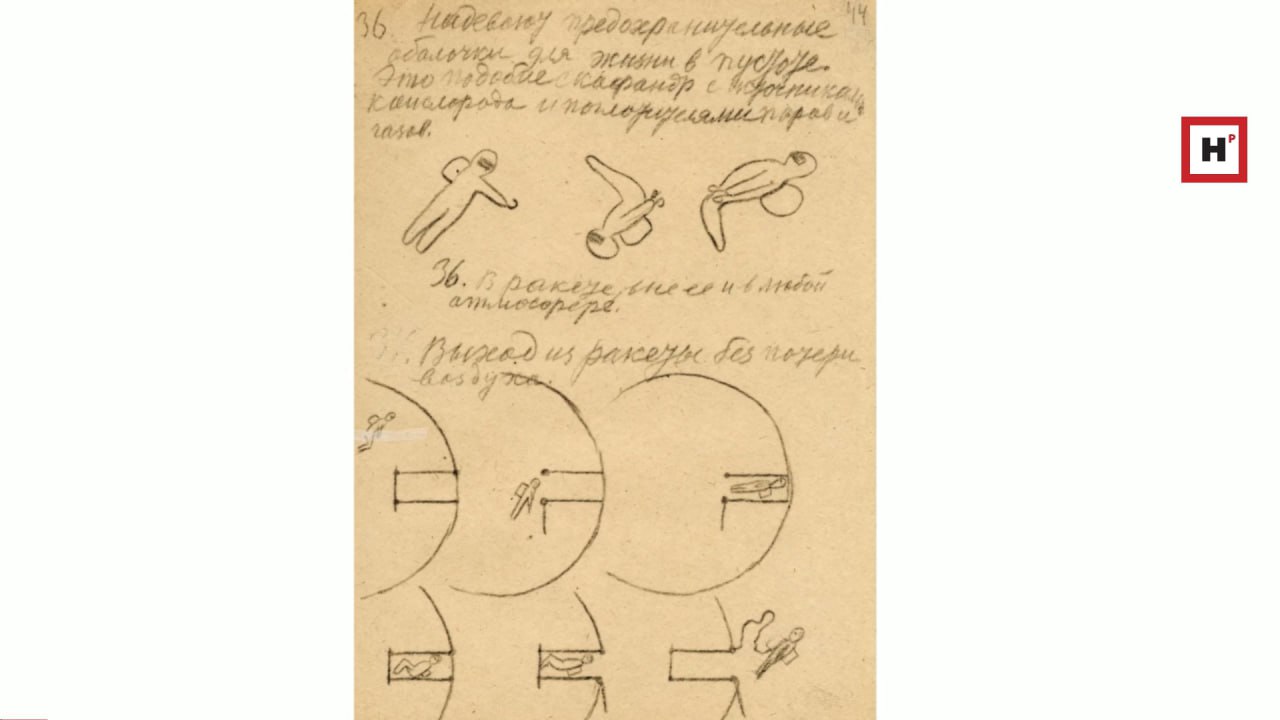 44
36. Надевают предохранительные
оболочки для жизни в пустоте.
Это подобие скафандр с источниками
кислорода и поглотителями паров и
газов.
36. В ракете, вне ее и в любой
атмосфере.
Выход из ракеты без потери
воздуха.
НР